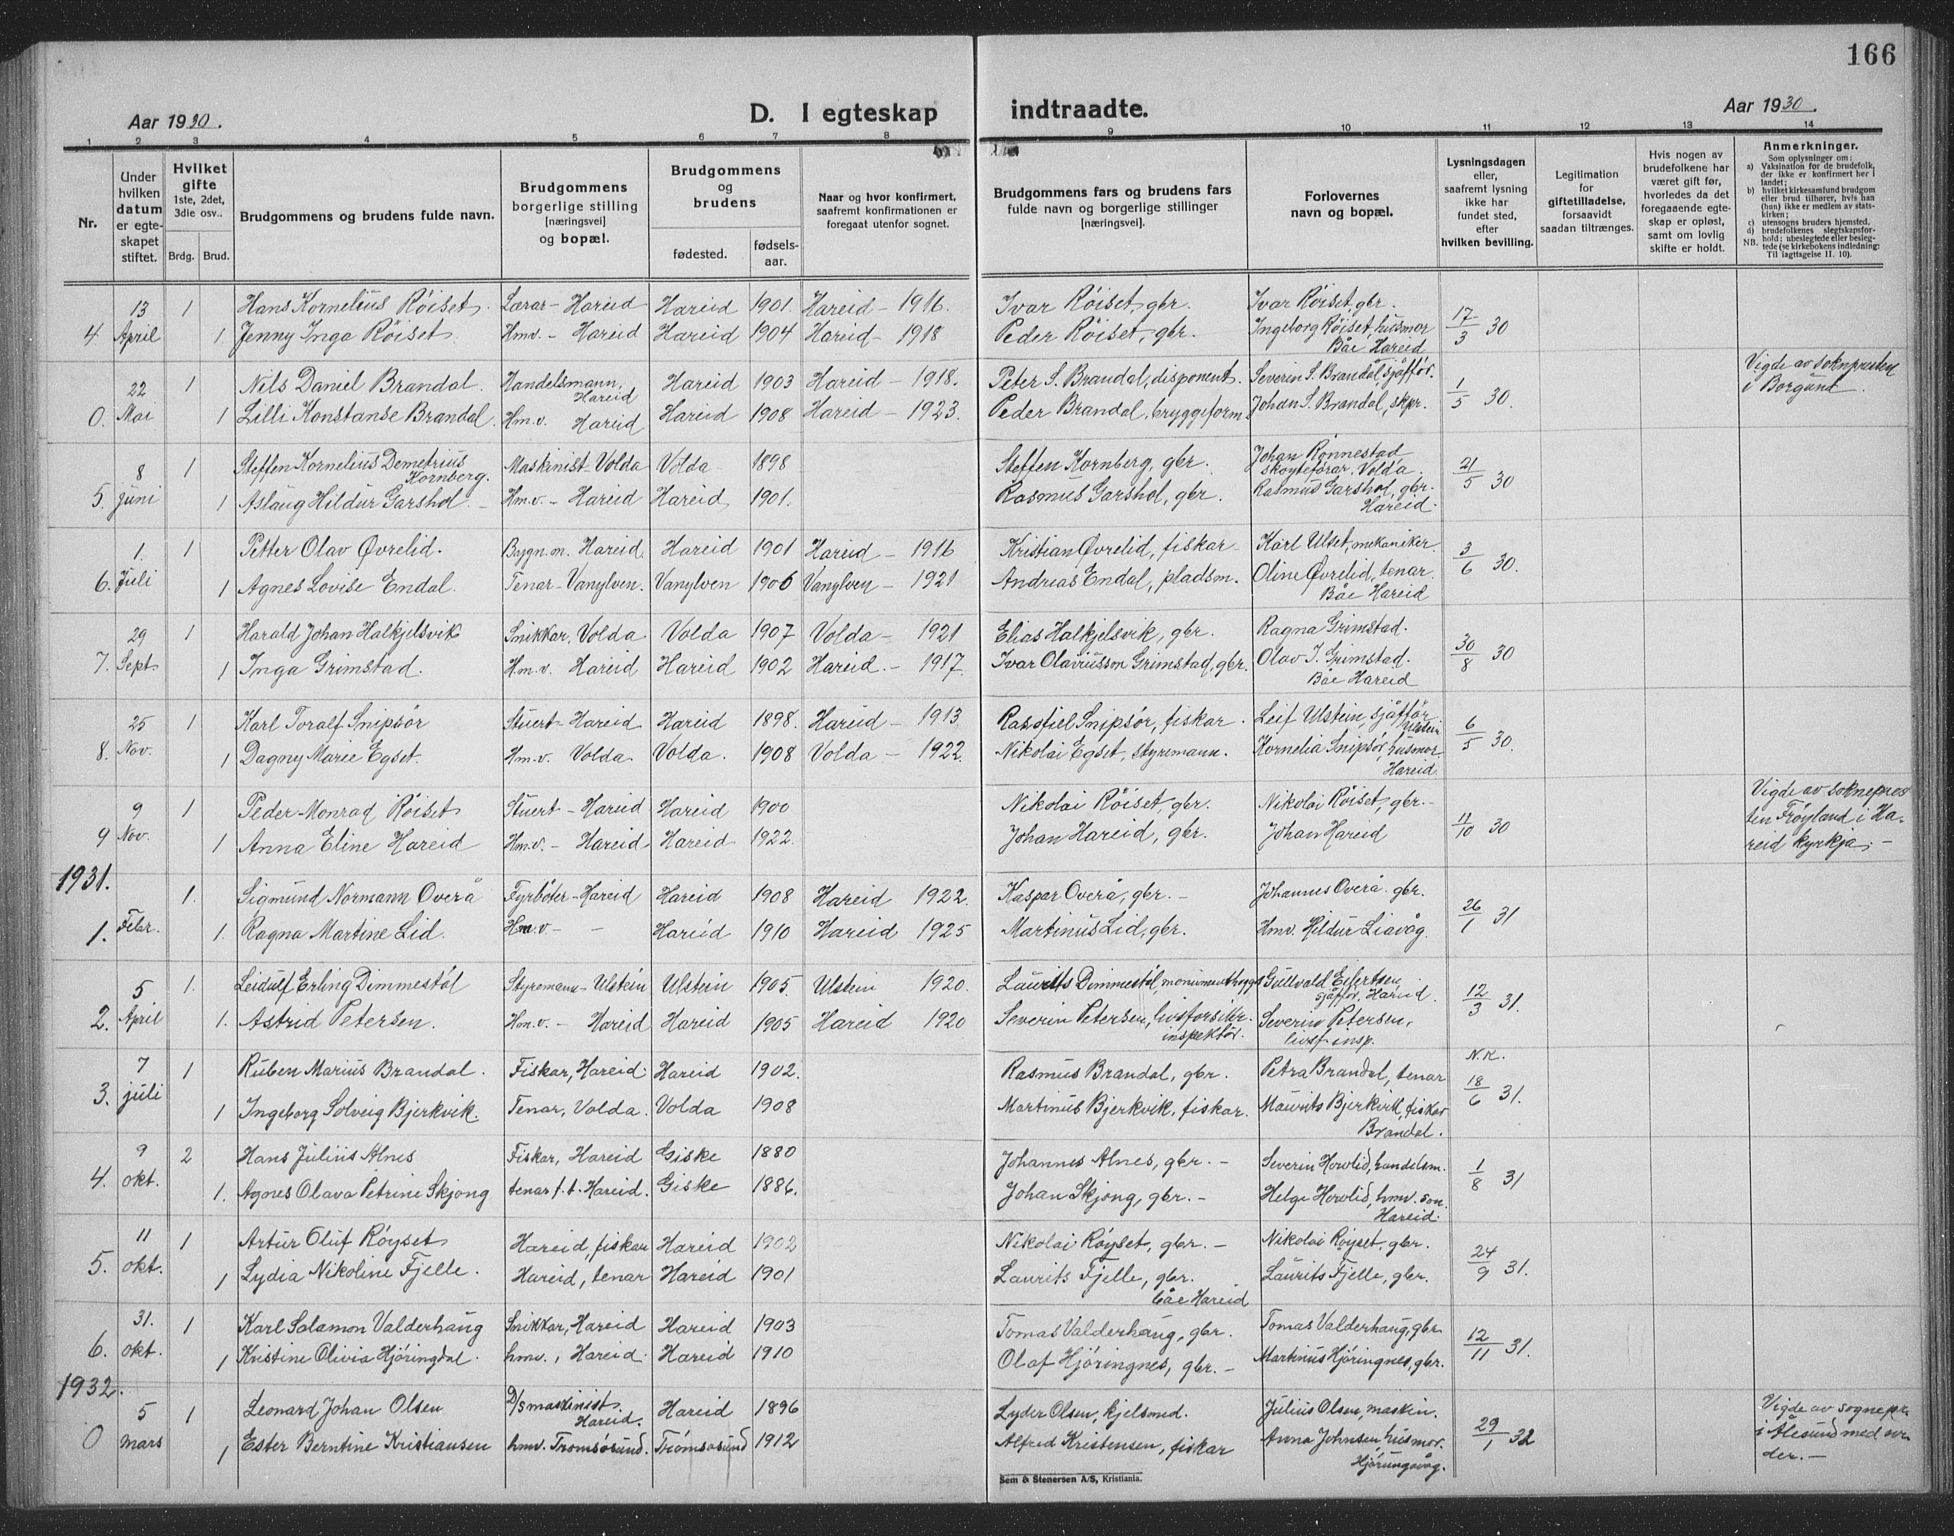 166
Aar 1930.
D. I egteskap
indtraadte.
Aar 1930.
1 2 3 4 5 6 7 8 9 10 11 12 13 14
Nr.
Under hvilken datum er egteskapet stiftet.
Hvilket gifte 1ste, 2det, 3die osv..
Brdg. Brud.
Brudgommens og brudens fulde navn.
Brudgommens borgerlige stilling [næringsvei] og bopæl.
Brudgommens og brudens
fødested. fødsels-aar.
Naar og hvor konfirmert, saafremt konfirmationen er foregaat utenfor sognet.
Brudgommens fars og brudens fars fulde navn og borgerlige stillinger [næringsvei].
Forlovernes navn og bopæl.
Lysningsdagen eller, saafremt lysning ikke har fundet sted, efter hvilken bevilling.
Legitimation for giftetilladelse, forsaavidt saadan tiltrænges.
Hvis nogen av brudefolkene har været gift før, hvorledes da det foregaaende egteskap er opløst, samt om lovlig skifte er holdt.
Anmerkninger.
Som oplysninger om:
a) Vaksination for de brudefolk, der ikke er konfirmert her i landet;
b) hvilket kirkesamfund brudgom eller brud tilhører, hvis han (hun) ikke er medlem av statskirken;
c) utensogns bruders hjemsted.
d) brudefolkenes slegtskapsforhold; ubeslegtede eller beslegtede (se kirkebokens indledning:
NB. Til iagttagelse II. 10).
13 1 Hans Kornelius Röiset. Lærar - Hareid Hareid 1901. Hareid - 1916. Ivar Röiset, gbr. Ivar Röiset, gbr. 17/3 30
4 April 1 Jenny Inga Röiset. Hmv. - Hareid Hareid 1904 Hareid - 1918 Peder Röiset, gbr. Ingeborg Röiset, husmor
Båe Hareid
22 1 Nils Daniel Brandal. Handelsmann, Hareid Hareid 1903 Hareid - 1918. Peter S. Brandal, disponent. Severin S. Brandal, sjåffør. 1/5 30. Vigde av soknpresten
0. Mai 1 Lilli Konstanse Brandal. Hm.v. Hareid Hareid 1908 Hareid - 1923. Peder Brandal, bryggeform. Johan S. Brandal, skpr. i Borgund.
8 1 Steffen Kornelius Demetrius Kornberg. Maskinist - Volda Volda 1898 Steffen Kornberg, gbr. Johan Rønnestad skøyteførar. Volda. 21/5 30
5. juni 1 Aslaug Hildur Garshol. Hm.v. - Hareid Hareid 1901. Rasmus Garshol, gbr. Rasmus Garshol, gbr.
Hareid.
1. 1 Petter Olav Øvrelid. Bygn.m. Hareid. Hareid 1901 Hareid - 1916 Kristian Øvrelid, fiskar Karl Ulset, mekaniker. 3/6 30.
6. Juli 1 Agnes Lovise Endal. Tenar - Vanylven. Vanylven 1906 Vanylven - 1921 Andreas Endal, pladsm. Oline Øvrelid, tenar.
Båe Hareid
29 1 Harald Johan Halkjelsvik Snikkar, Volda Volda 1907 Volda - 1921 Elias Halkjelsvik, gbr. Ragna Grimstad. 30/8 30
7. Sept 1 Inga Grimstad. Hm.v. Hareid Hareid 1902 Hareid. - 1917. Ivar Olavusson Grimstad, gbr. Olav I. Grimstad.
Båe Hareid
25 1 Karl Toralf Snipsör Stuert - Hareid Hareid 1898. Hareid - 1913. Leif Ulstein, sjåffør Ulstein 6/5 30.
8. Nov. 1 Dagny Marie Egset. Hm.v. Volda Volda. 1908 Volda - 1922. Nikolai Egset, styrmann. Kornelia Snipsör, husmor
Hareid.
9 1 Peder Monrad Röiset Stuert - Hareid Hareid 1900 Nikolai Röiset, gbr. Nikolai Röiset, gbr. 11/10 30 Vigde av sokneprest
9 Nov. 1 Anna Eline Hareid Hm.v. - Hareid Hareid 1922. Johan Hareid, gbr. Johan Hareid ten Frøyland i Hareid kyrkja. -
1931.
1. Sigmund Normann Overå Fyrbøter - Hareid Hareid 1908 Hareid 1922. Kaspar Overå, gbr. - Johannes Overå. gbr. 26/1 31
1. Febr. 1. Ragna Martine Lid. Hm.v - Hareid 1910 Hareid 1925 Martinus Lid, gbr. Hmv. Hildur Liavåg.
5 1. Leidulf Erling Dimmestöl Styrmann - Ulstein Ulstein 1905. Ulstein 1920. Laurits Dimmestöl, Gullvald Eilertsen, sjåffør. Hareid. 12/3 31.
2. April 1. Astrid Petersen. Hm.v. - Hareid Hareid 1905 Hareid 1920 Severin Petersen, livsforsikr. inspektør. Severin Petersen, livsf. insp.
7 1 Ruben Marius Brandal. Fiskar, Hareid Hareid 1902. Rasmus Brandal, gbr. Petra Brandal, tenar N.K.
3. juli 1 Ingeborg Solveig Bjerkvik. Tenar, Volda. Volda 1908 Martinus Bjerkvik, fiskar. Maurits Bjerkvik, fiskar 18/6 31.
Brandal.
9 2 Hans Julius Alnes Fiskar, Hareid Giske 1880 Johannes Alnes, gbr. - Severin Hovlid, handelsm. 1/8 31
4. okt. 1. Agnes Olava Petrine Skjong tenar f.t. Hareid. Giske 1886. Johan Skjong, gbr. - Helge Hovlid, hmv. son
Hareid.
11 1 Artur Oluf Röyset Hareid, fiskar Hareid 1902 Nikolai Röyset, gbr. - Nikolai Röyset, gbr. 24/9 31.
5. okt. 1 Lydia Nikoline Fjelle. Hareid, tenar Hareid 1901 Laurits Fjelle, gbr. Laurits Fjelle, gbr.
båe Hareid
31. 1 Karl Salamon Valderhaug Snikkar, Hareid Hareid 1903 Tomas Valderhaug, gbr. Tomas Valderhaug, gbr 12/11 31.
6. okt. 1 Kristine Olivia Hjöringdal. hmv., Hareid Hareid 1910 Olaf Hjöringnes, gbr. - Martinus Hjöringnes, gbr.
1932.
5 1 Leonard Johan Olsen D/s maskinist. Hareid. Hareid 1896 Lyder Olsen, kjelsmed. Julius Olsen, maskin. 29/1 32 Vigde av sognepr.
0 mars 1 Ester Berntine Kristiansen hmv. Tromsøsund. Tromsøsund 1912 Alfred Kristensen, fiskar Anna Johnsen, husmor. i Ålesund med
Hjørungavåg.
Sem & Stenersen A/S, Kristiania.